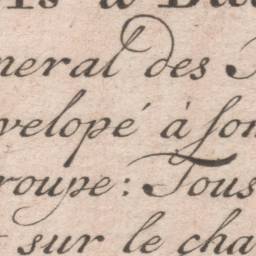 neral des
velopé à son
roupe: Tous
sur le cha